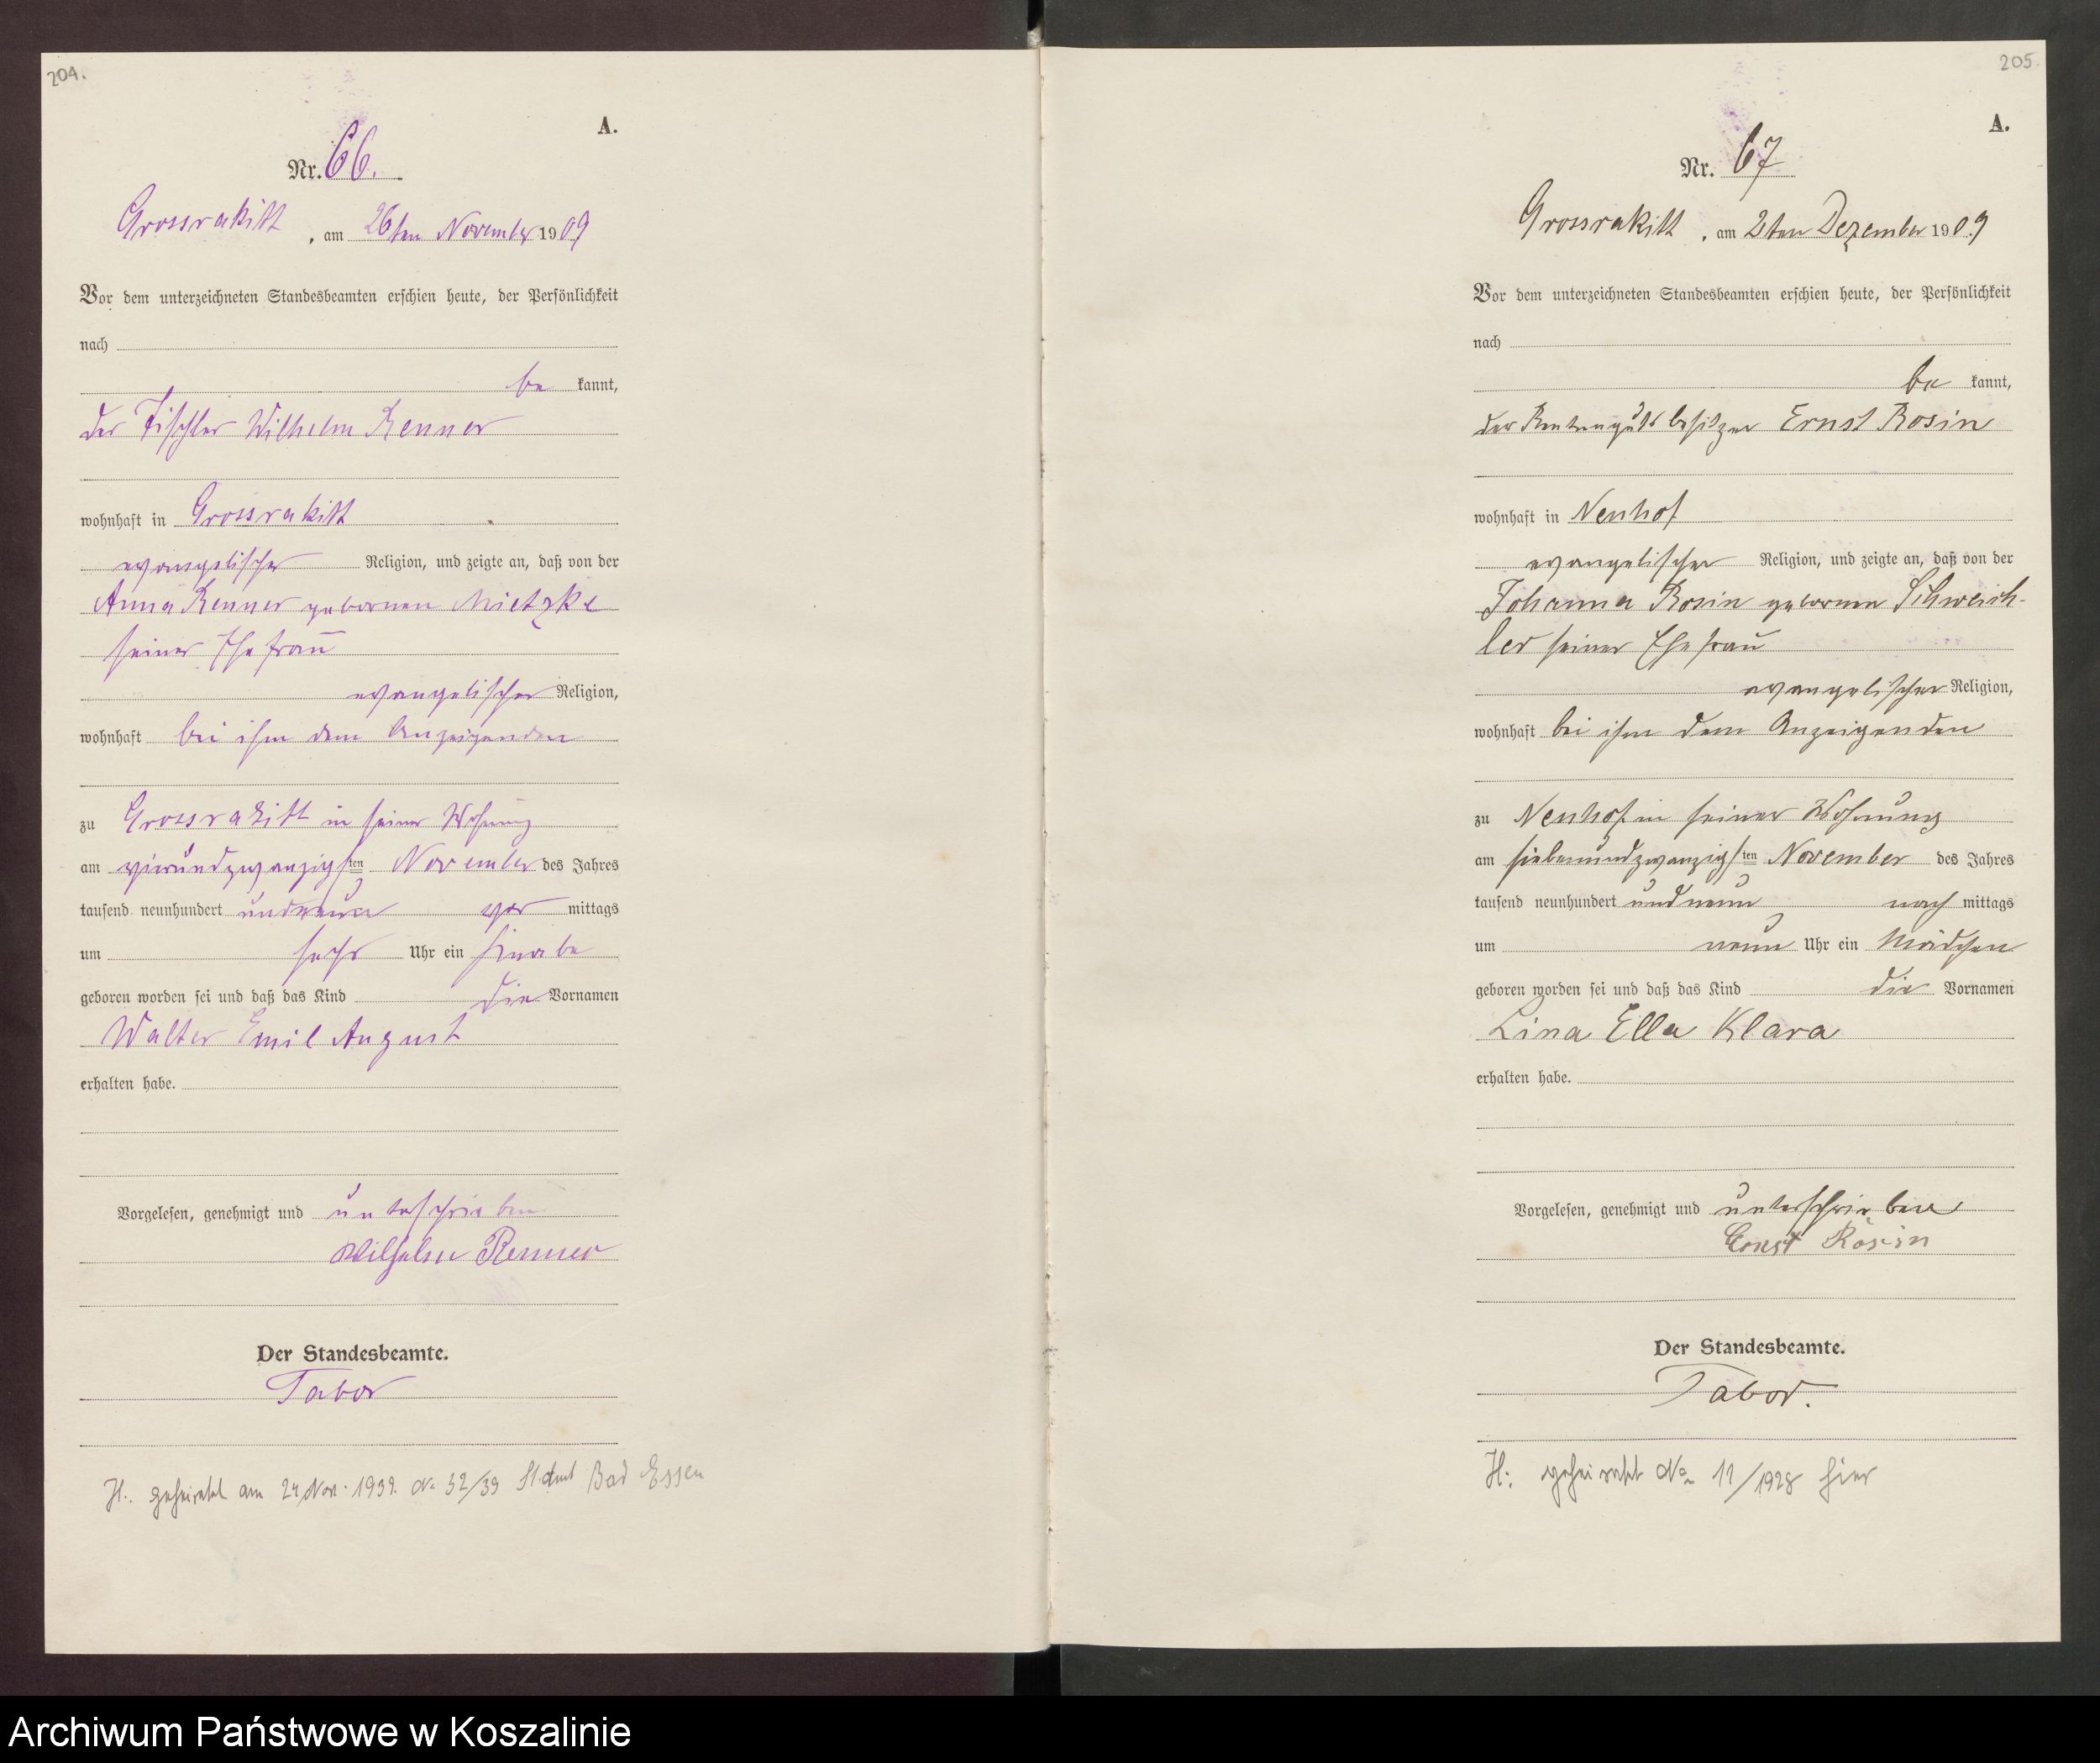 204.
A.
Nr. 66.
Grossrakitt, am 26ten November 1909
Vor dem unterzeichneten Standesbeamten erschien heute, der Persönlichkeit
nach
be kannt,
der Tischler Wilhelm Renner
wohnhaft in Grossrakitt
evangelischer Religion, und zeigte an, daß von der
Anna Renner geborenen Mietzke
seiner Ehefrau
evangelischer Religion,
wohnhaft bei ihm dem Anzeigenden
zu Grossrakitt in seiner Wohnung
am vierundzwanzigsten November des Jahres
tausend neunhundert undneun vor mittags
um sechs Uhr ein Knabe
geboren worden sei und daß das Kind die Vornamen
Walter Emil August
erhalten habe.
Vorgelesen, genehmigt und unterschrieben
Wilhelm Renner
Der Standesbeamte.
Tabor
H.: geheiratet am 24 Nov. 1939. No 52/39 St.Amt Bad Essen
205.
A.
Nr. 67
Grossrakitt, am 2ten Dezember 1909
Vor dem unterzeichneten Standesbeamten erschien heute, der Persönlichkeit
nach
be kannt,
der Rentengutsbesitzer Ernst Rosin
wohnhaft in Neuhof
evangelischer Religion, und zeigte an, daß von der
Johanna Rosin geborenen Schweich-
ler seiner Ehefrau
evangelischer Religion,
wohnhaft bei ihm dem Anzeigenden
zu Neuhof in seiner Wohnung
am siebenundzwanzigsten November des Jahres
tausend neunhundert undneun nach mittags
um neun Uhr ein Mädchen
geboren worden sei und daß das Kind die Vornamen
Lina Ella Klara
erhalten habe.
Vorgelesen, genehmigt und unterschrieben
Ernst Rosin
Der Standesbeamte.
Tabor.
H: geheiratet No 11/1928 hier
Archiwum Państwowe w Koszalinie